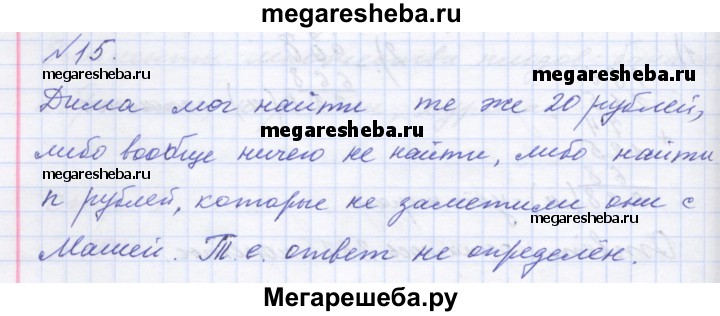 megaresheba.ru
№15.
megaresheba.ru
megaresheba.ru
Дима мог найти те же 20 рублей,
megaresheba.ru
либо вообще ничего не найти, либо найти
megaresheba.ru
n рублей, которые не заметили они с
megaresheba.ru
Машей. Т.е. ответ не определён.
megaresheba.ru
Мегарешеба.ру